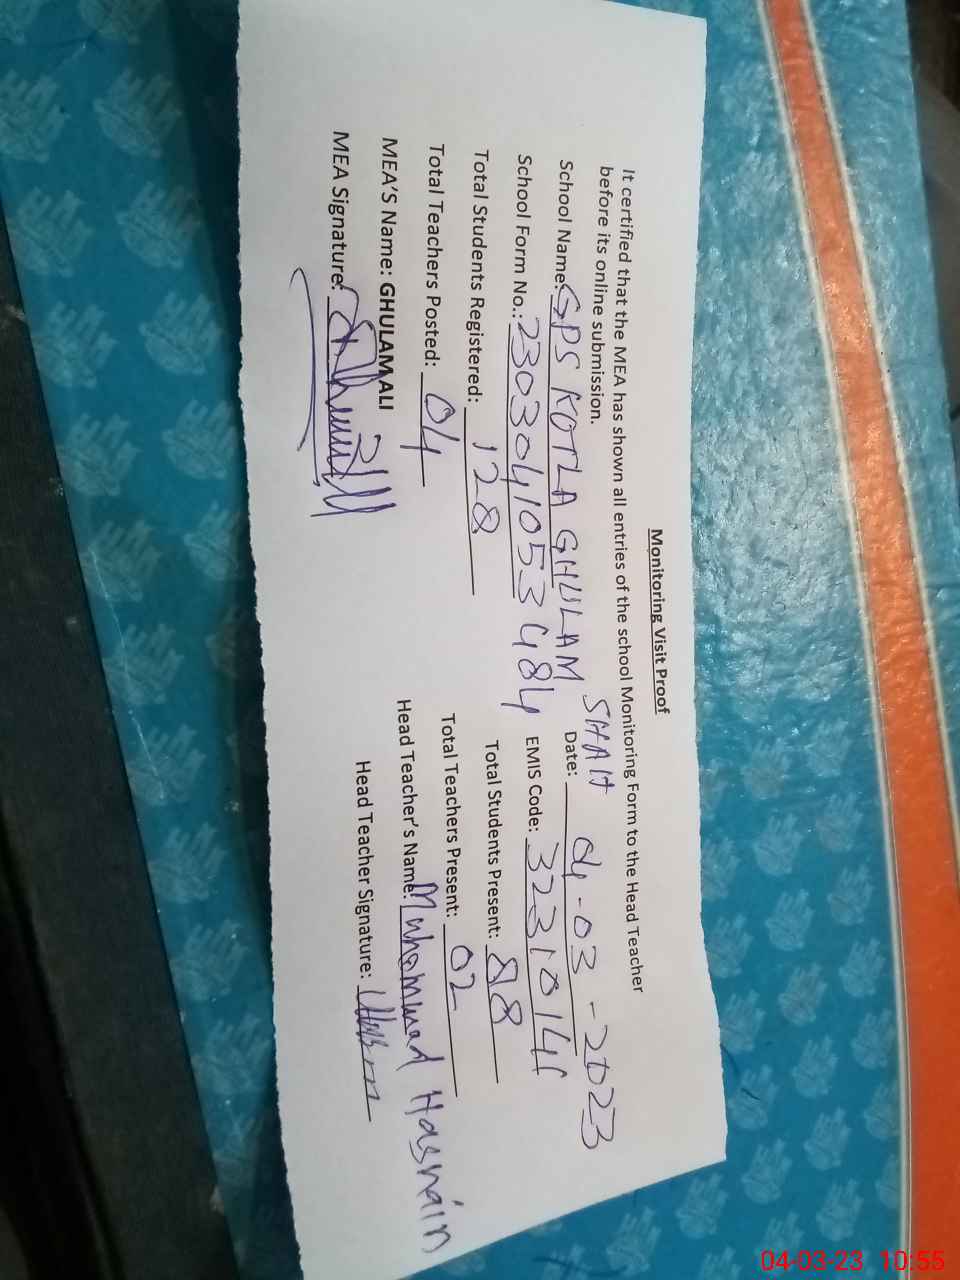 Monitoring Visit Proof
It certified that the MEA has shown all entries of the school Monitoring Form to the Head Teacher
before its online submission.
School Name: GPS KOTLA GHULAM SHAH Date: 04-03-2023
School Form No.: 2303041053484 EMIS Code: 32310144
Total Students Registered: 128 Total Students Present: 88
Total Teachers Posted: 04 Total Teachers Present: 02
MEA'S Name: GHULAM ALI Head Teacher's Name: Muhammad Hasnain
MEA Signature: Head Teacher Signature:
04-03-23 10:55